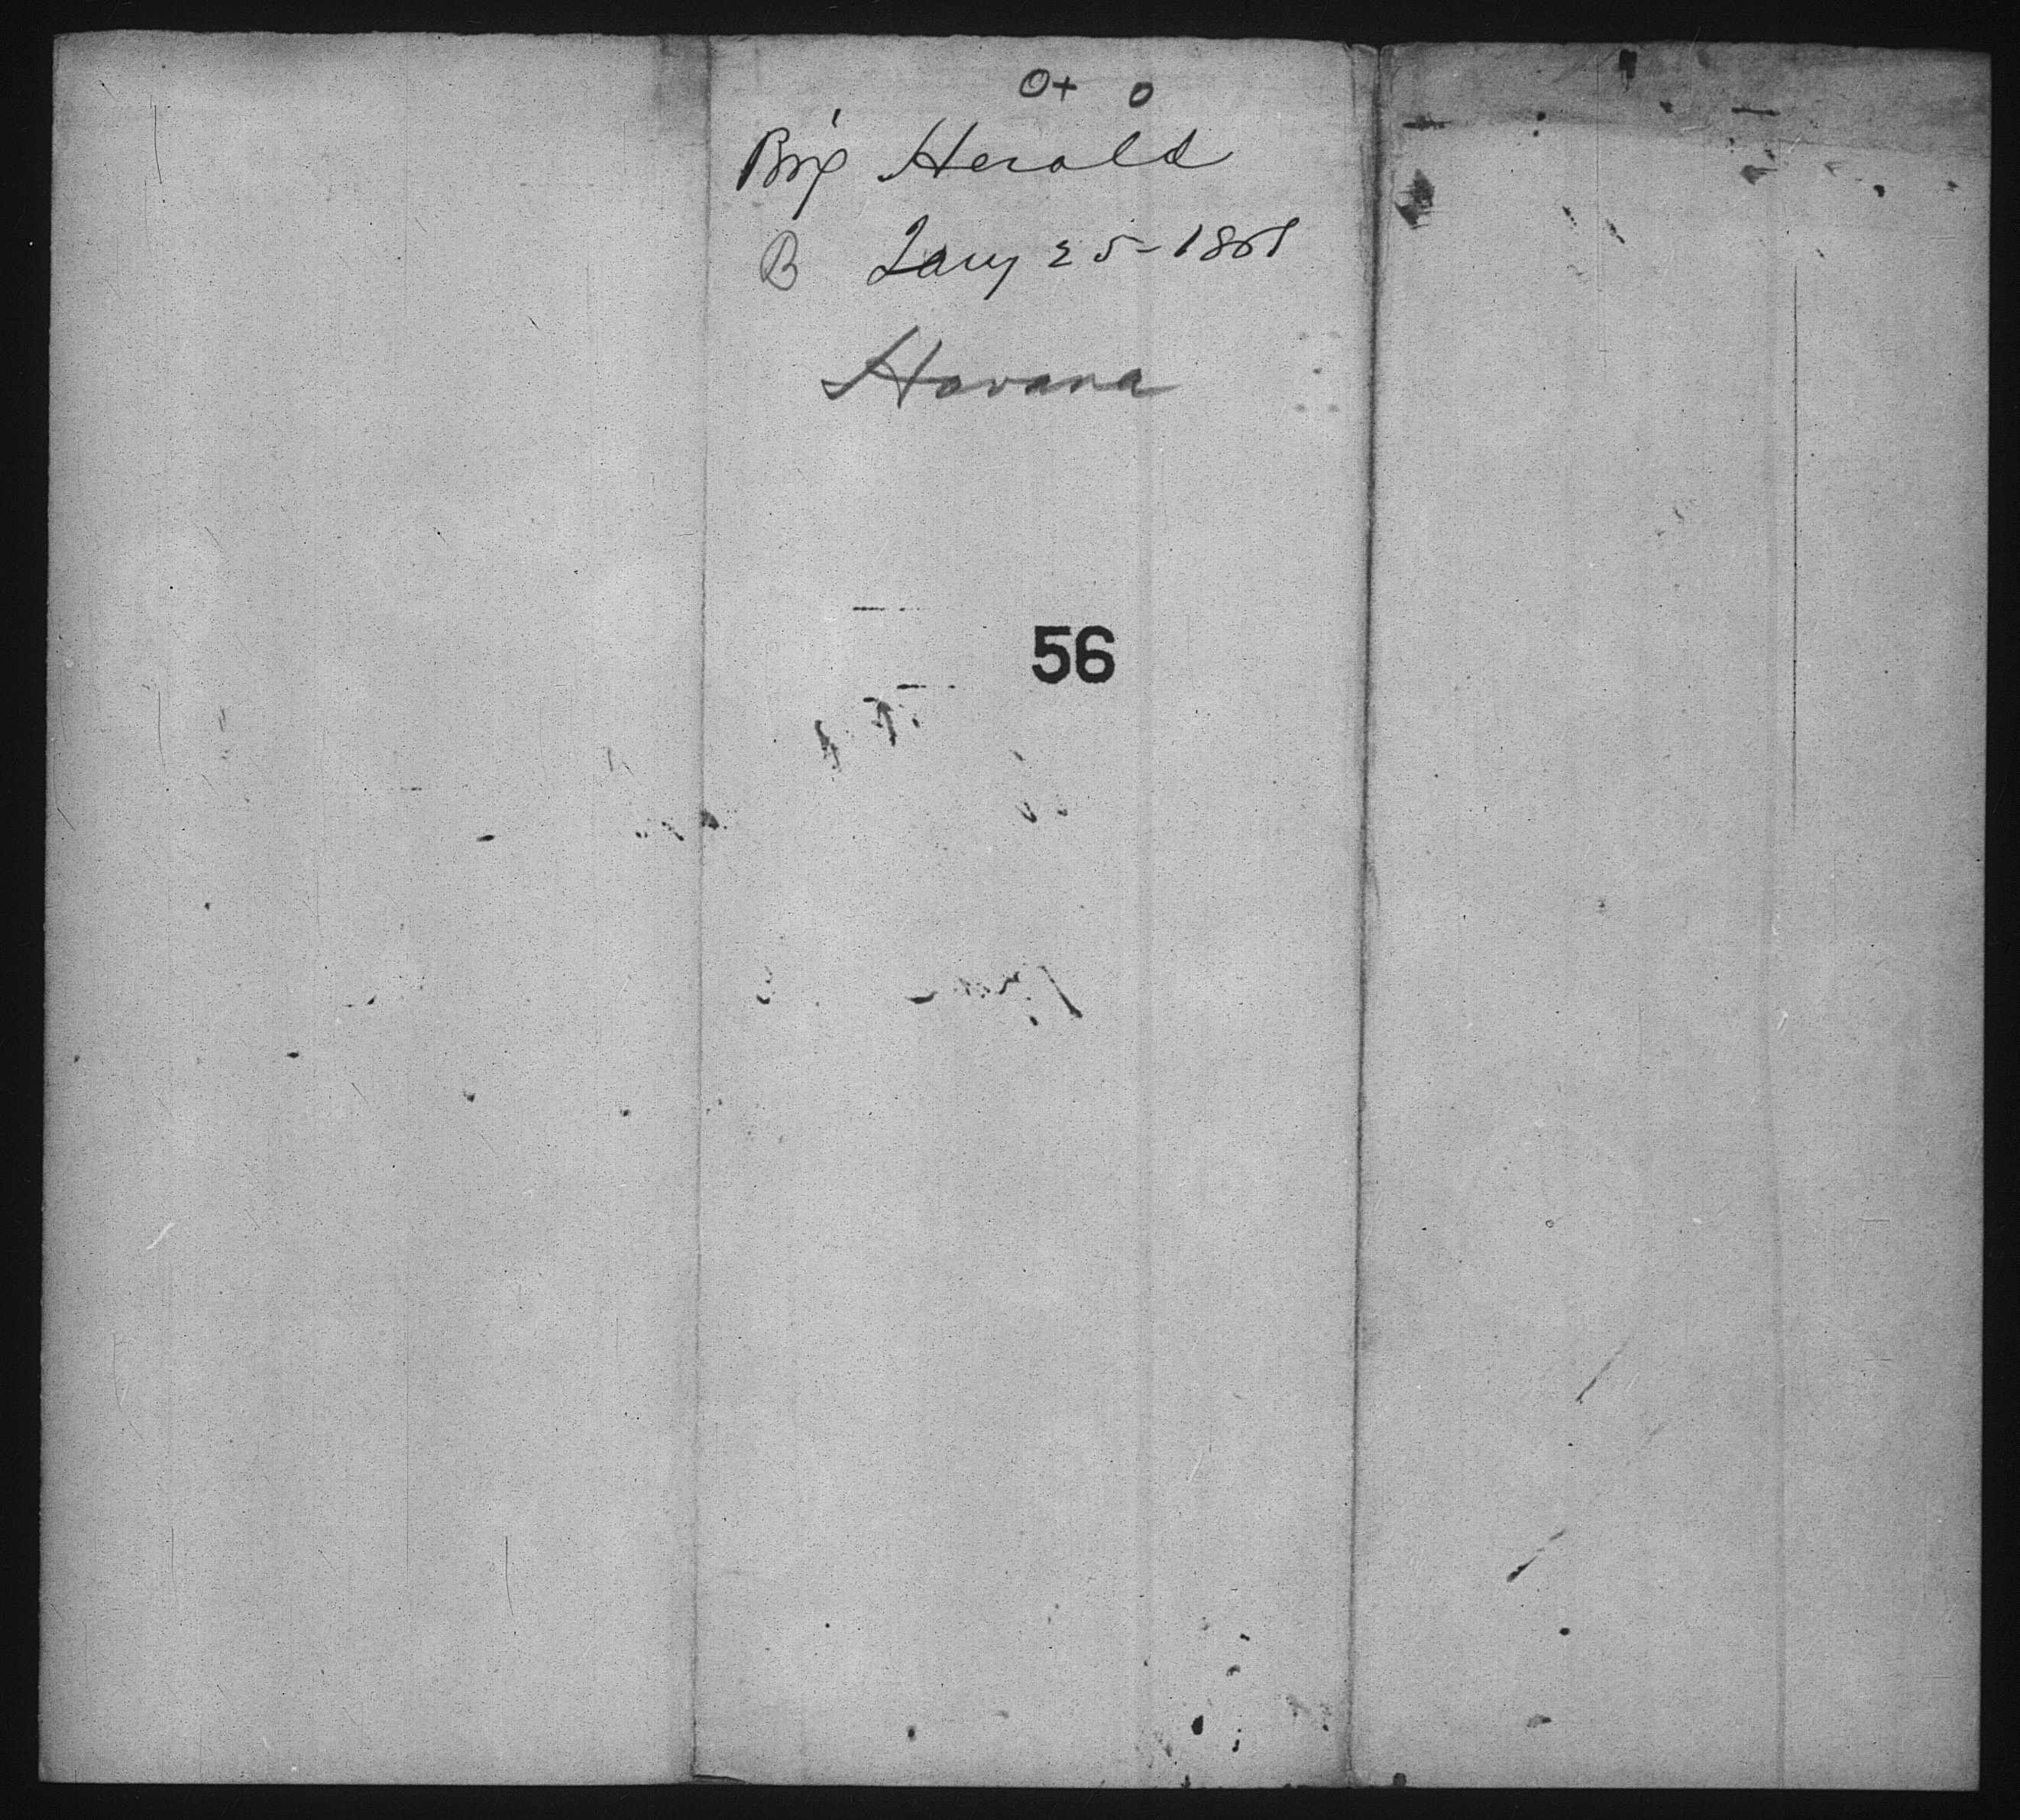 O+ O
Brig Herald
B Jany 25-1868
Havana
56